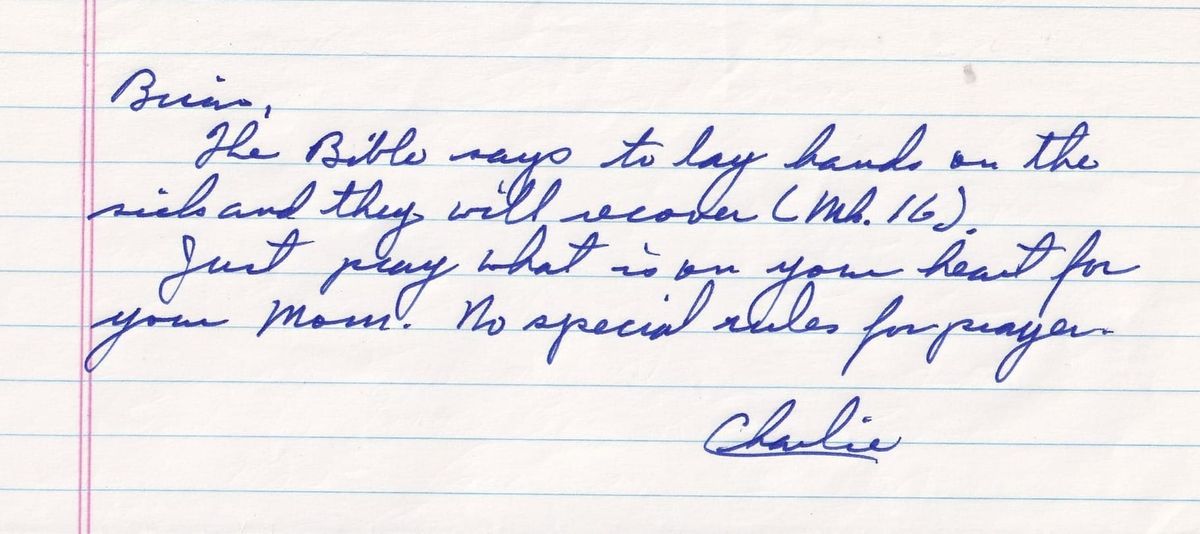 Brian,
The Bible says to lay hands on the
sick and they will recover (Mk. 16).
Just pray what is on your heart for
your Mom. No special rules for prayer.
Charlie